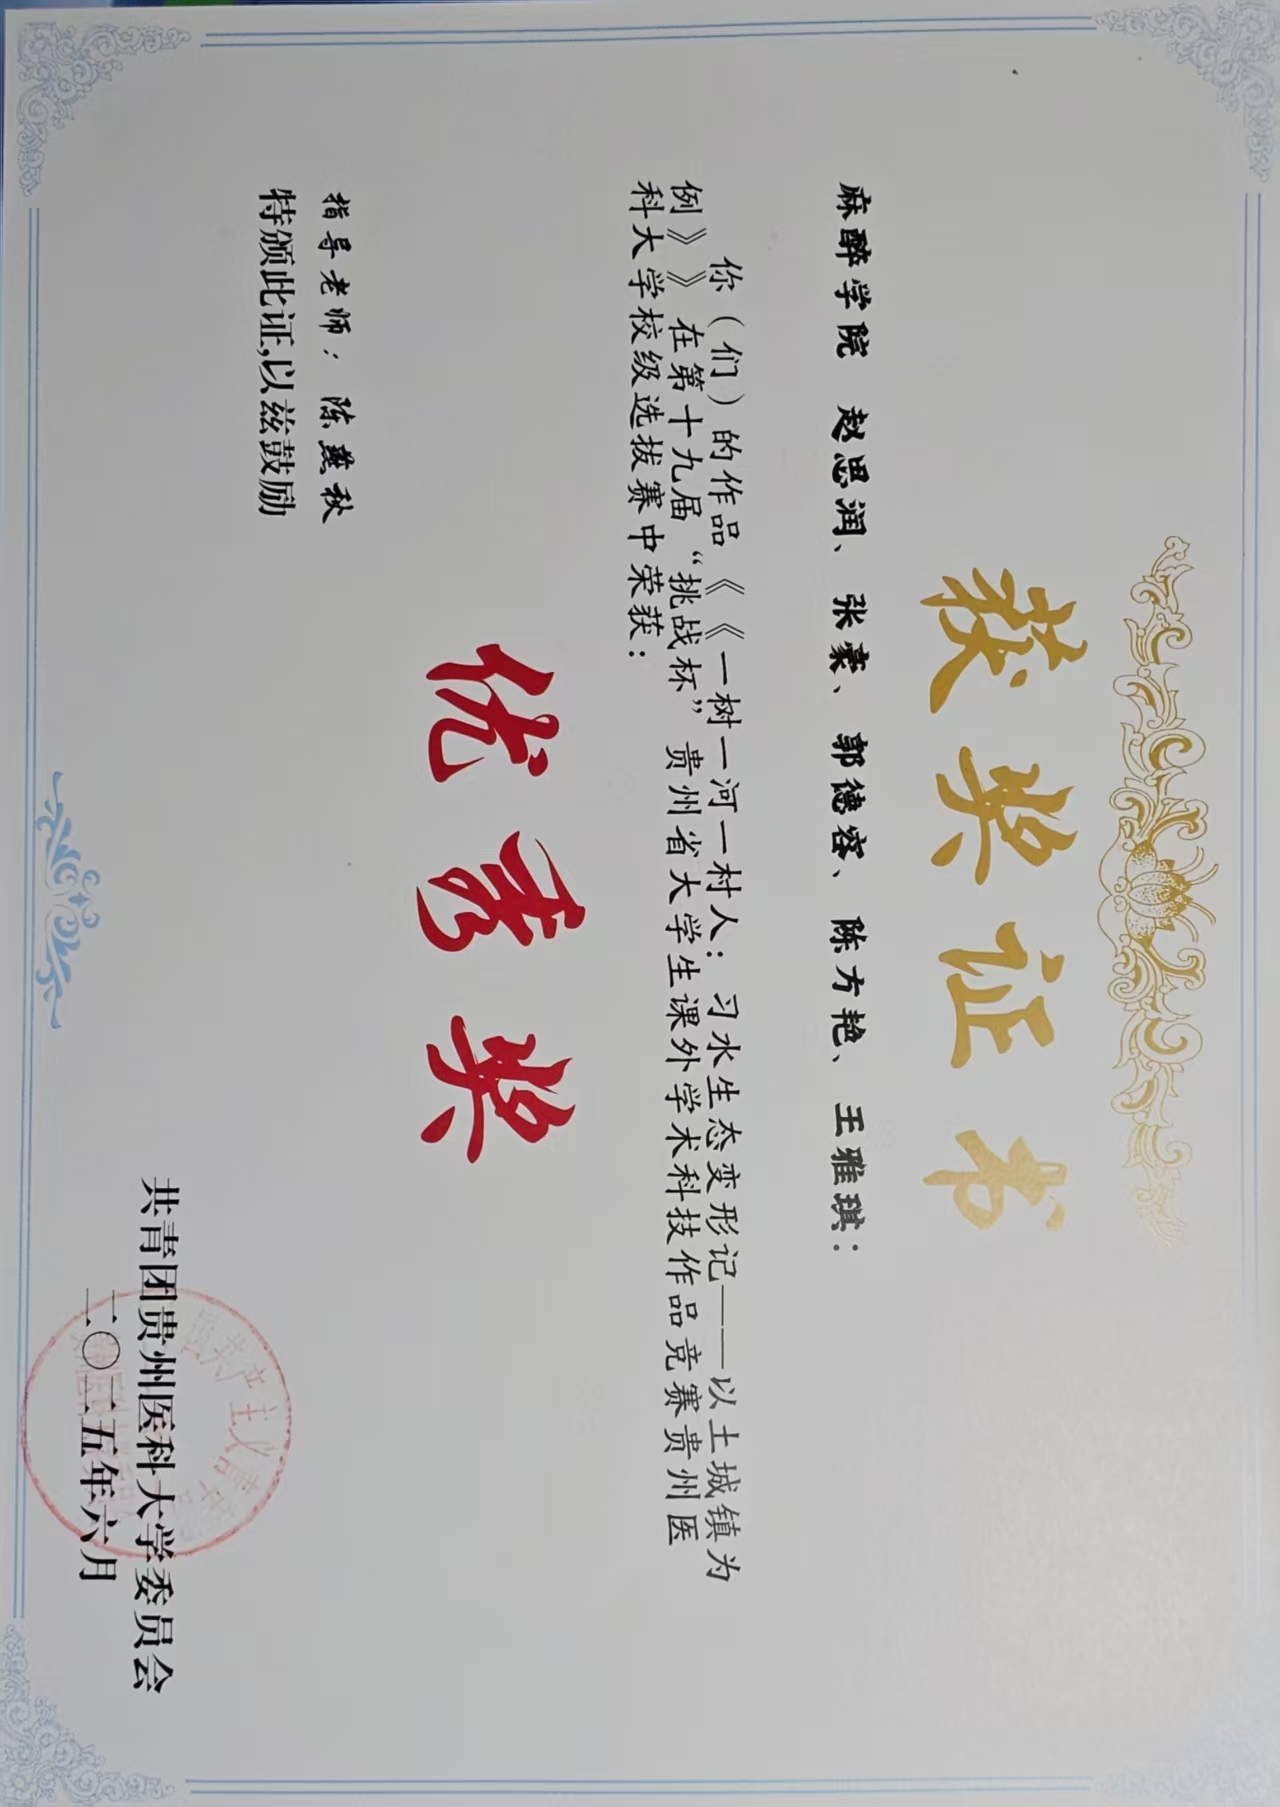 获奖证书
麻醉学院 赵思润、张豪、郭德容、陈方艳、王雅琪：
你（们）的作品《《一树一河一村人：习水生态变形记——以土城镇为
例》》在第十九届“挑战杯”贵州省大学生课外学术科技作品竞赛贵州医
科大学校级选拔赛中荣获：
优秀奖
指导老师：陈燕秋
特颁此证,以兹鼓励
共青团贵州医科大学委员会
二〇二五年六月